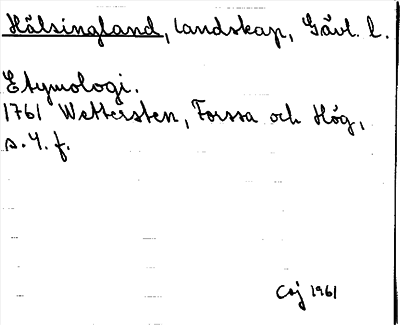 Hälsingland, landskap, Gävl. l.
Etymologi.
1761 Wettersten, Forssa och Hög,
s. 4. f.
Coj 1961